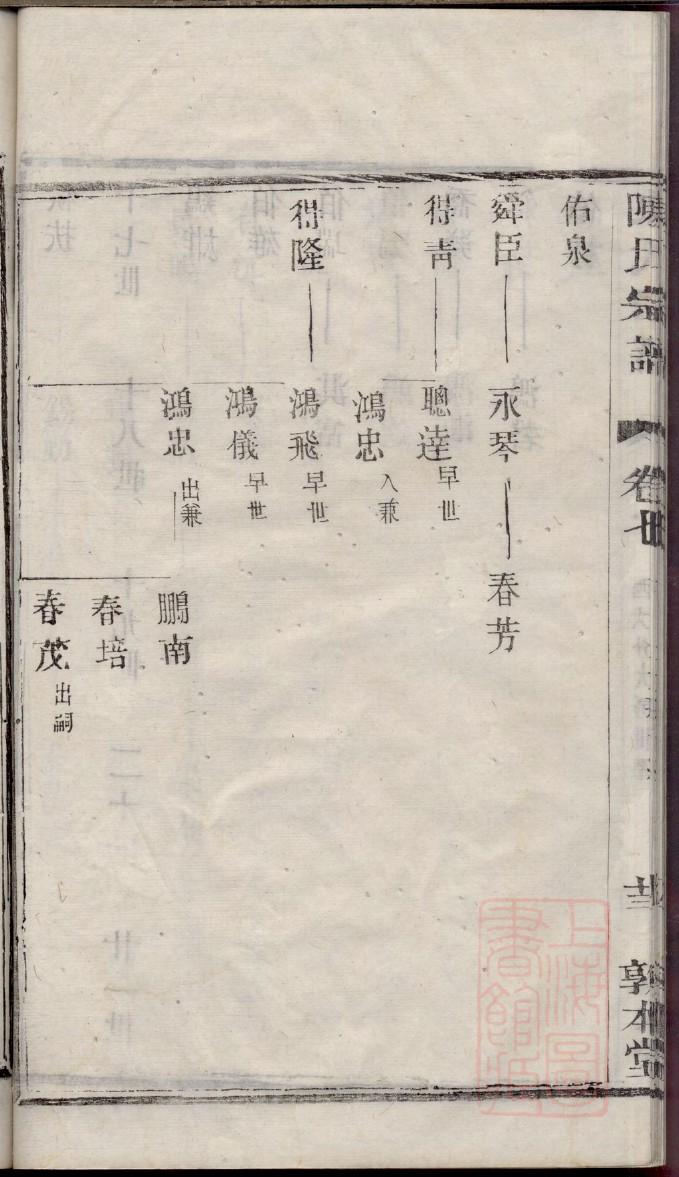 陳氏宗譜
卷廿
敦本堂
佑泉
舜臣
永琴
春芳
得靑
聰達 早世
鴻忠 入兼
得隆
鴻飛 早世
鴻儀 早世
鴻忠 出兼
鵬南
春培
春茂 出嗣
上海圖書館藏